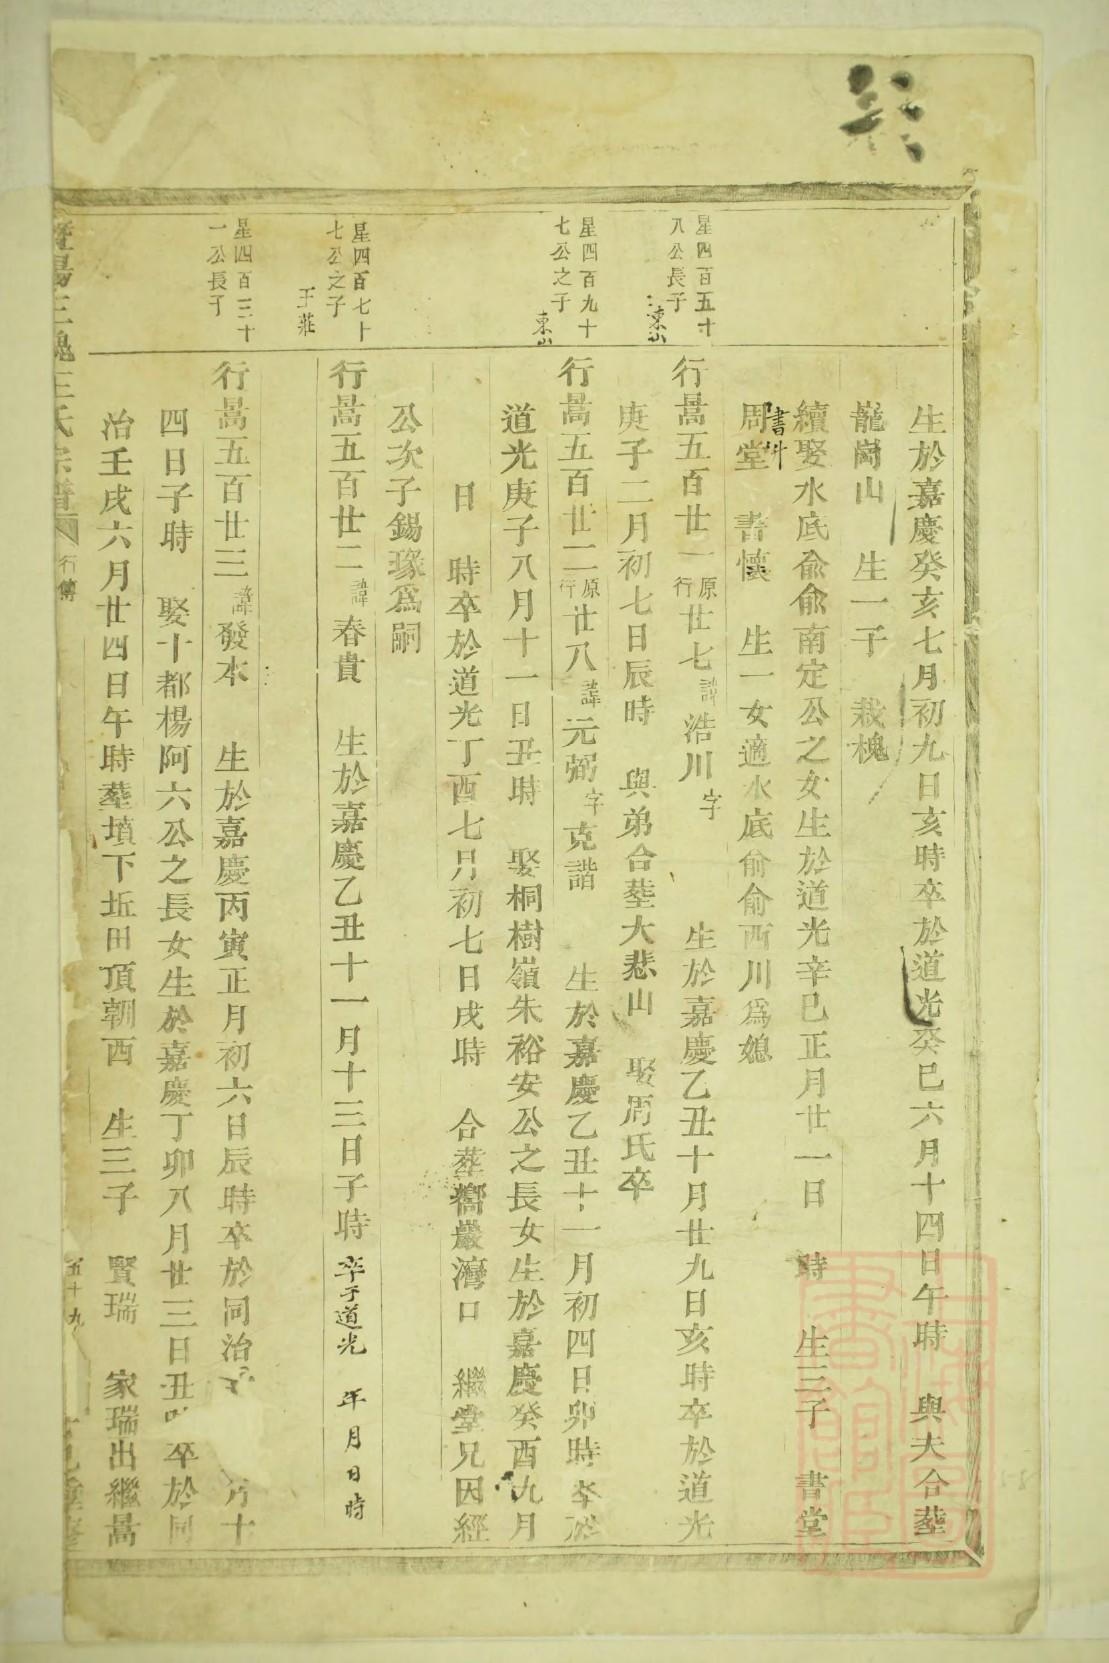 生於嘉慶癸亥七月初九日亥時卒於道光癸巳六月十四日午時 與夫合塟
巃崗山 生一子 栽槐
續娶水底俞俞南定公之女生於道光辛巳正月廿一日 時 生三子 書堂
周堂 書懷 生一女適水底俞俞西川爲媳
星四百五十
八公長子
東山
行暠五百廿一原行廿七諱浩川字 生於嘉慶乙丑十月廿九日亥時卒於道光
庚子二月初七日辰時 與弟合塟大悲山 娶周氏卒
星四百九十
七公之子
東山
行暠五百廿二原行廿八諱元弼字克諧 生於嘉慶乙丑十一月初四日卯時卒於
道光庚子八月十一日丑時 娶桐樹嶺朱裕安公之長女生於嘉慶癸酉九月
日 時卒於道光丁酉七月初七日戌時 合塟嚮巖灣口 繼堂兄因經
公次子錫瑑爲嗣
星四百七十
七公之子
王莊
行暠五百廿二諱春貴 生於嘉慶乙丑十一月十三日子時 卒于道光 年月日時
星四百三十
一公長子
行暠五百廿三諱發本 生於嘉慶丙寅正月初六日辰時卒於同治 月十
四日子時 娶十都楊阿六公之長女生於嘉慶丁卯八月廿三日丑 卒於同
治壬戌六月廿四日午時塟墳下坵田頂朝西 生三子 賢瑞 家瑞出繼暠
暨陽三槐王氏宗譜 行傳 五十九